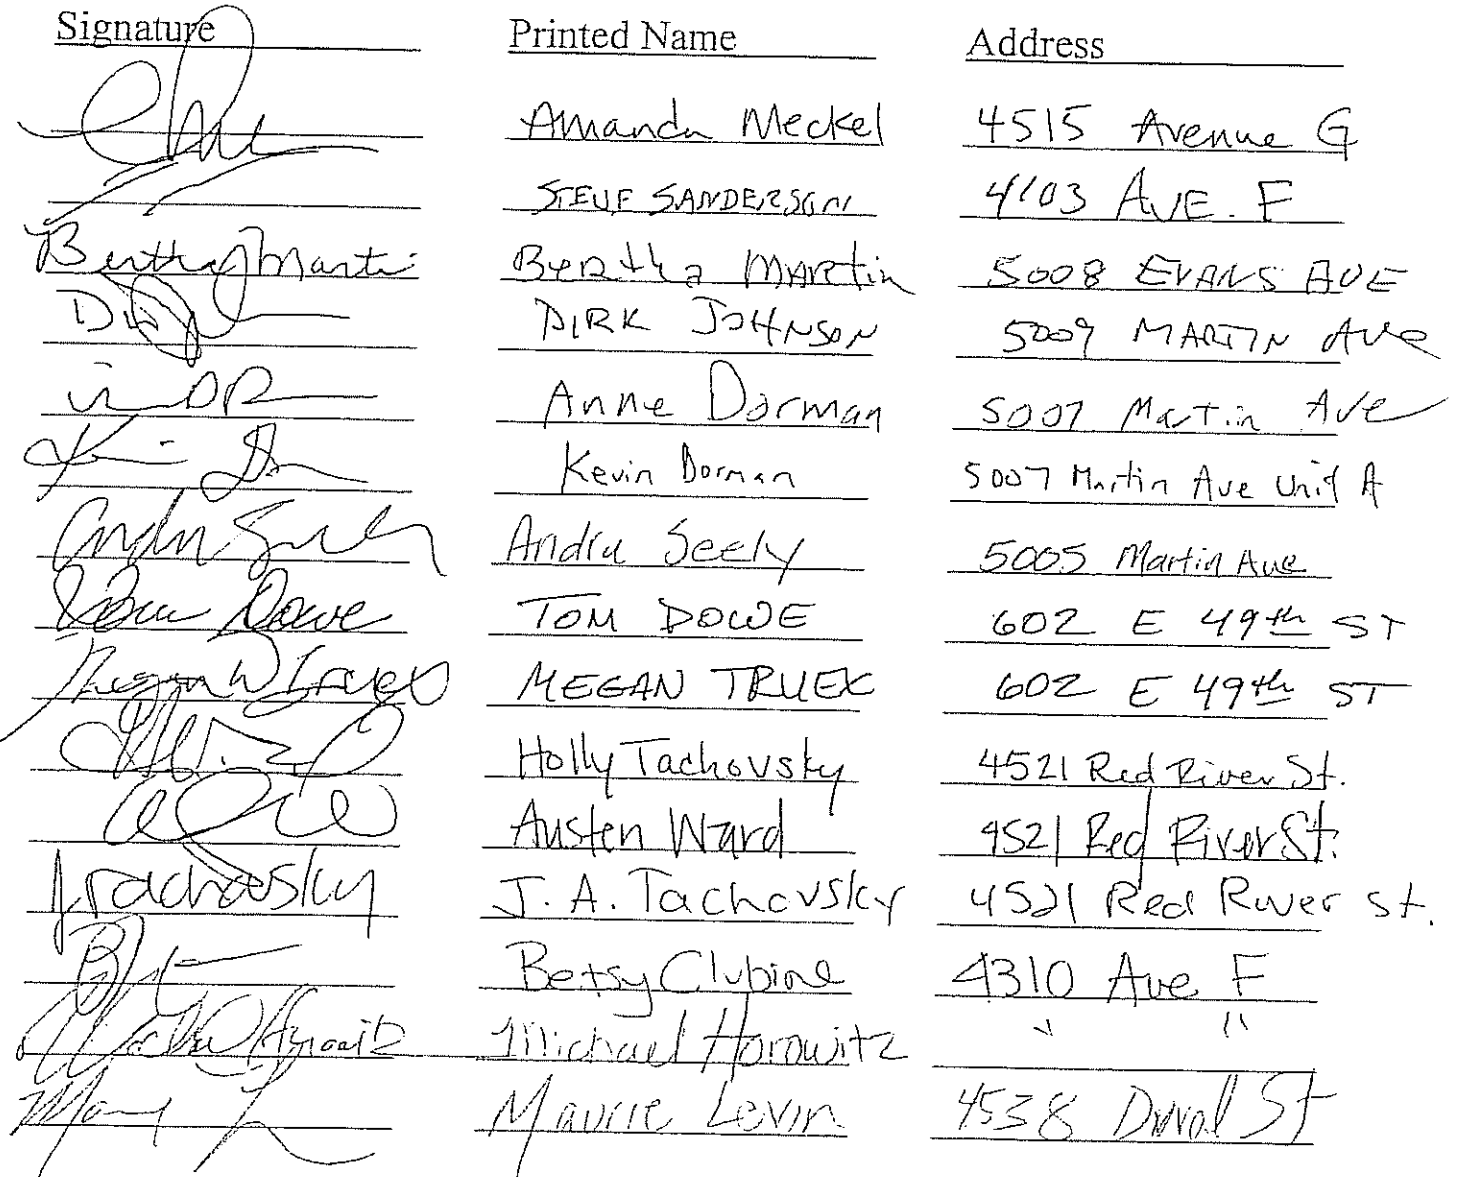 Signature Printed Name Address
Amanda Meckel 4515 Avenue G
STEVE SANDERSON 4103 AVE. F
Bertha Martin Bertha MARtin 5008 EVANS AVE
DIRK JOHNSON 5009 MARTIN AVE
Anne Dorman 5007 Martin Ave
Kevin Dorman 5007 Martin Ave Unit A
Seely 5005 Martin Ave
Tom Dowe TOM DOWE 602 E 49th ST
Megan W Truex MEGAN TRUEX 602 E 49th ST
Holly Tachovsky 4521 Red River St.
Austen Ward 4521 Red River St.
J Tachovsky J. A. Tachovsky 4521 Red River st.
Betsy Clubine 4310 Ave F
Michael Horowitz Michael Horowitz " "
Maurie Levin 4538 Duval St